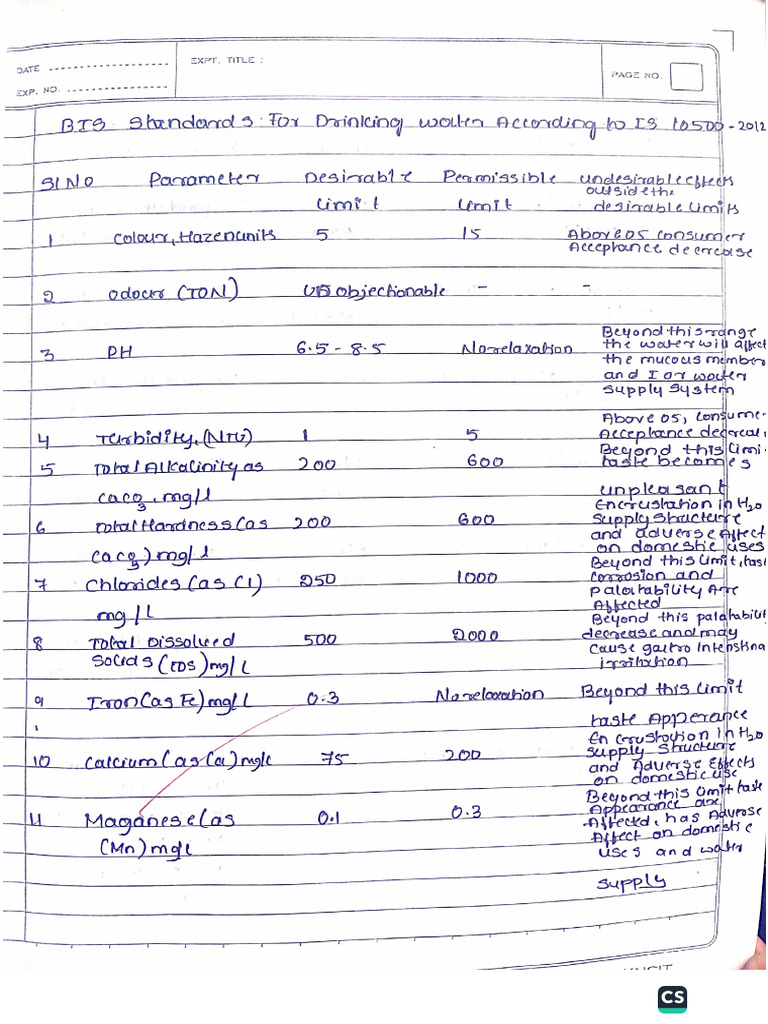 DATE
EXPT. TITLE :
PAGE NO.
EXP. NO.
BIS Standards For Drinking water According to IS 10500-2012
Sl No Parameter Desirable Limit Permissible Limit undesirable effects outside the desirable limits
1 Colour, Hazen units 5 15 Above 05 consumer Acceptance decrease
2 odour (TON) UnObjectionable - -
3 PH 6.5 - 8.5 No relaxation Beyond this range the water will affect the mucous member and I or water supply system
4 Turbidity, (NTU) 1 5 Above 05, consume Acceptance decrea
5 Total Alkalinity as CaCO3, mg/l 200 600 Beyond this limit taste becomes unpleasant
6 Total Hardness (as CaCO3) mg/l 200 600 Encrustation in H2O supply structure and adverse Affect on domestic uses
7 Chlorides (as Cl) mg/L 250 1000 Beyond this limit, tast corrosion and palatability Are Affected
8 Total Dissolved Solids (TDS) mg/L 500 2000 Beyond this palatabilit decrease and may cause gastro Intenstina irritation
9 Iron (as Fe) mg/L 0.3 No relaxation Beyond this Limit taste Apperance
10 Calcium (as Ca) mg/l 75 200 Encrustation in H2O supply structure and Adverse Effects on domestic use
11 Maganese (as (Mn) mg/l 0.1 0.3 Beyond this limit taste Appearance are Affected, has Adverse Affect on domestic uses and water supply
CS